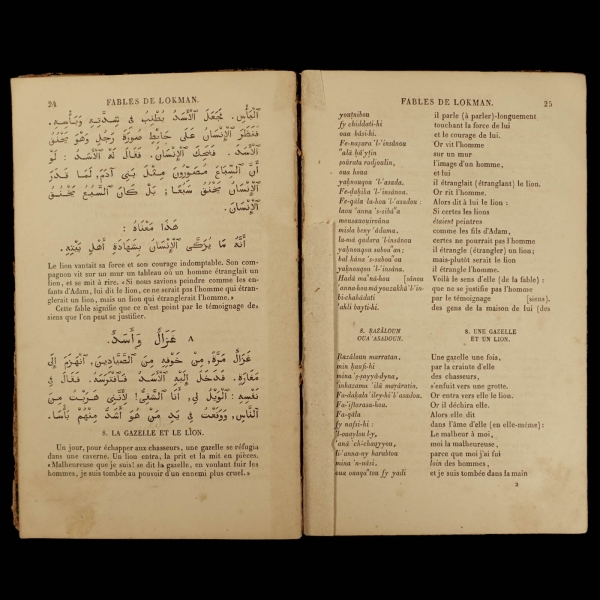 24 FABLES DE LOKMAN.
ٱلْبَأْسِ. فَجَعَلَ ٱلْأَسَدُ يُطْنِبُ فِي شِدَّتِهِ وَبَأْسِهِ.
فَنَظَرَ ٱلْإِنْسَانُ عَلَى حَائِطٍ صُورَةَ رَجُلٍ وَهُوَ يَخْنُقُ
ٱلْأَسَدَ. فَضَحِكَ ٱلْإِنْسَانُ. فَقَالَ لَهُ ٱلْأَسَدُ : لَوْ
أَنَّ ٱلسِّبَاعَ مُصَوِّرُونَ مِثْلَ بَنِي آدَمَ، لَمَا قَدَرَ
ٱلْإِنْسَانُ يَخْنُقُ سَبُعًا؛ بَلْ كَانَ ٱلسَّبُعُ يَخْنُقُ
ٱلْإِنْسَانَ.
هَذَا مَعْنَاهُ :
أَنَّهُ مَا يُزَكَّى ٱلْإِنْسَانُ بِشَهَادَةِ أَهْلِ بَيْتِهِ.
Le lion vantait sa force et son courage indomptable. Son com-
pagnon vit sur un mur un tableau où un homme étranglait un
lion, et se mit à rire. «Si nous savions peindre comme les en-
fants d'Adam, lui dit le lion, ce ne serait pas l'homme qui étran-
glerait un lion, mais un lion qui étranglerait l'homme.»
Cette fable signifie que ce n'est point par le témoignage de
siens que l'on peut se justifier.
٨ غَزَالٌ وَأَسَدٌ.
غَزَالٌ مَرَّةً، مِنْ خَوْفِهِ مِنَ ٱلصَّيَّادِينَ، ٱنْهَزَمَ إِلَى
مَغَارَةٍ. فَدَخَلَ إِلَيْهِ ٱلْأَسَدُ فَٱفْتَرَسَهُ. فَقَالَ فِي
نَفْسِهِ : ٱلْوَيْلُ لِي، أَنَا ٱلشَّقِيُّ! لِأَنَّنِي هَرَبْتُ مِنَ
ٱلنَّاسِ، وَوَقَعْتُ فِي يَدِ مَنْ هُوَ أَشَدُّ مِنْهُمْ بَأْسًا.
8. LA GAZELLE ET LE LION.
Un jour, pour échapper aux chasseurs, une gazelle se réfugia
dans une caverne. Un lion entra, la prit et la mit en pièces.
«Malheureuse que je suis! se dit la gazelle, en voulant fuir les
hommes, je suis tombée au pouvoir d'un ennemi plus cruel.»
FABLES DE LOKMAN. 25
youṭnibou il parle (à parler)-longuement
fy chiddati-hi touchant la force de lui
oua bâsi-hi. et le courage de lui.
Fe-naẓara 'l-'insânou Or vit l'homme
'alä ḥâ'yṭin sur un mur
ṣoûrata radjoulin, l'image d'un homme,
oua houa et lui
yaḫnouqou 'l-'asada. il étranglait (étranglant) le lion.
Fe-ḍaḥika 'l-'insânou. Or rit l'homme.
Fe-qâla la-hou 'l-'asadou : Alors dit à lui le lion :
laou 'anna 's-sibâ'a Si certes les lions
mouṣaouirouna étaient peintres
misla beny 'âdama, comme les fils d'Adam,
la-mâ qadara 'l-'insânou certes ne pourrait pas l'homme
yaḫnouqou sabou'an; il étrangle (étrangler) un lion;
bal kâna 's-sabou'ou mais-plutôt serait le lion
yaḫnouqou 'l-'insâna. il étrangle l'homme.
Haḏâ ma'nâ-hou [sânou Voilà le sens d'elle (de la fable) :
'anna-hou mâ youzakkä 'l-'in- que ne se justifie pas l'homme
bi-chahâdati par le témoignage [siens).
'ahli bayti-hi. des gens de la maison de lui (des
8. ṘAZÂLOUN OUA 'ASADOUN.
8. UNE GAZELLE ET UN LION.
Ṙazâloun marratan, Une gazelle une fois,
min ḫaufi-hi par la crainte d'elle
mina 'ṣ-ṣayyâdyna, des chasseurs,
'inhazama 'ilä maṙâratin. s'enfuit vers une grotte.
Fa-daḫala 'iley-hi 'l-'asadou. Or entra vers elle le lion.
Fa-'iftarasa-hou. Or il déchira elle.
Fa-qâla Alors elle dit
fy nafsi-hi : dans l'âme d'elle (en elle-même) :
'l-ouaylou l-y, Le malheur à moi,
'anâ 'ch-chaqyyou, moi la malheureuse,
li-'anna-ny harabtou parce que moi j'ai fui
mina 'n-nâsi, loin des hommes,
oua ouaqa'tou fy yadi et je suis tombée dans la main
2